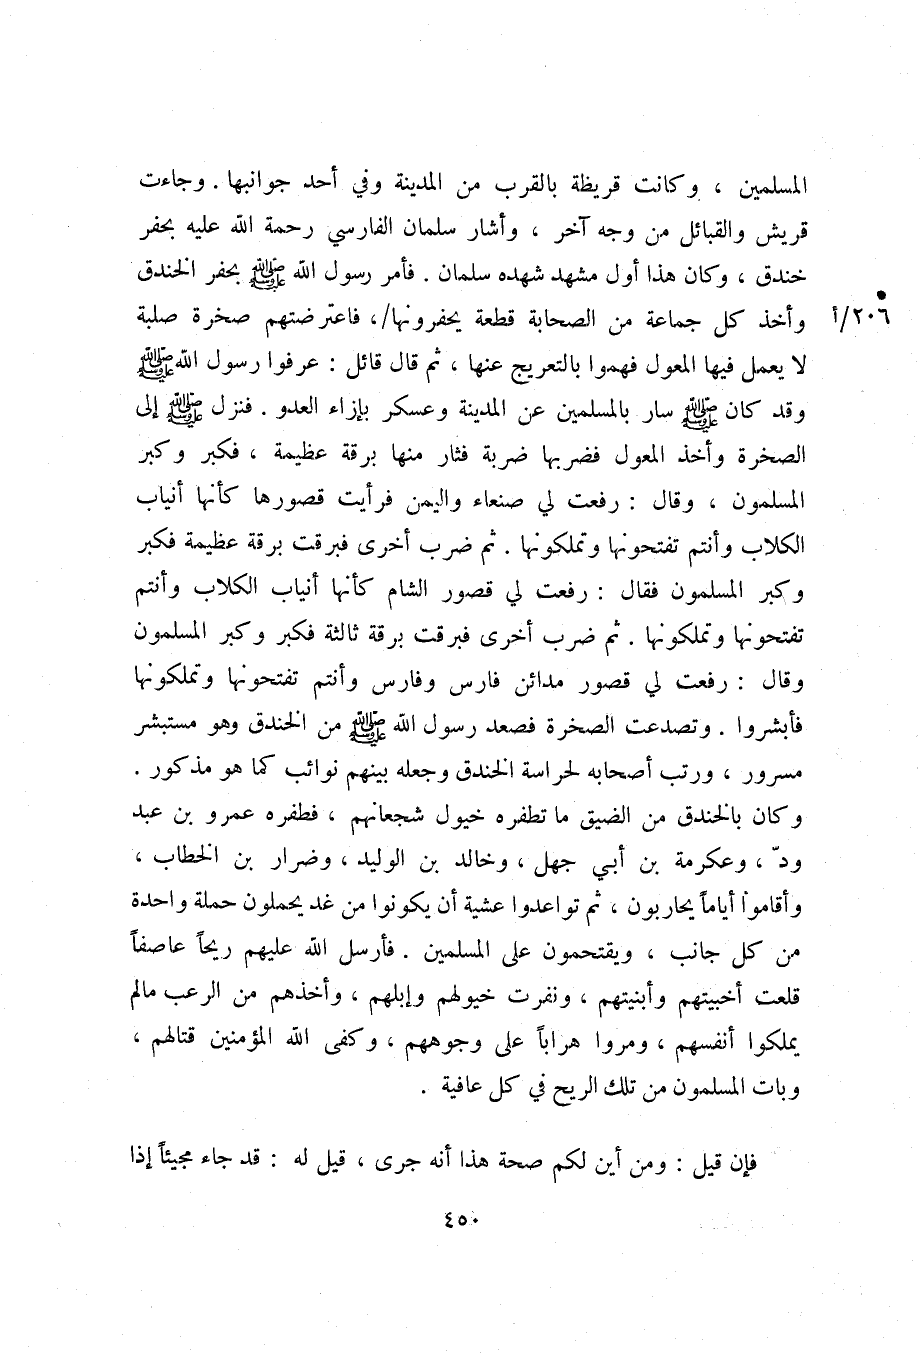 المسلمين ، وكانت قريظة بالقرب من المدينة وفي أحد جوانبها . وجاءت
قريش والقبائل من وجه آخر ، وأشار سلمان الفارسي رحمة الله عليه بحفر
خندق ، وكان هذا أول مشهد شهده سلمان . فأمر رسول الله ﷺ بحفر الخندق
وأخذ كل جماعة من الصحابة قطعة يحفرونها/، فاعترضتهم صخرة صلبة
٢٠٦/أ
لا يعمل فيها المعول فهموا بالتعريج عنها ، ثم قال قائل : عرفوا رسول الله ﷺ
وقد كان ﷺ سار بالمسلمين عن المدينة وعسكر بإزاء العدو . فنزل ﷺ إلى
الصخرة وأخذ المعول فضربها ضربة فثار منها برقة عظيمة ، فكبر وكبر
المسلمون ، وقال : رفعت لي صنعاء واليمن فرأيت قصورها كأنها أنياب
الكلاب وأنتم تفتحونها وتملكونها . ثم ضرب أخرى فبرقت برقة عظيمة فكبر
وكبر المسلمون فقال : رفعت لي قصور الشام كأنها أنياب الكلاب وأنتم
تفتحونها وتملكونها . ثم ضرب أخرى فبرقت برقة ثالثة فكبر وكبر المسلمون
وقال : رفعت لي قصور مدائن فارس وفارس وأنتم تفتحونها وتملكونها
فأبشروا . وتصدعت الصخرة فصعد رسول الله ﷺ من الخندق وهو مستبشر
مسرور ، ورتب أصحابه لحراسة الخندق وجعله بينهم نوائب كما هو مذكور .
وكان بالخندق من الضيق ما تطفره خيول شجعانهم ، فطفره عمرو بن عبد
ودّ ، وعكرمة بن أبي جهل ، وخالد بن الوليد ، وضرار بن الخطاب ،
وأقاموا أياماً يحاربون ، ثم تواعدوا عشية أن يكونوا من غد يحملون حملة واحدة
من كل جانب ، ويقتحمون على المسلمين . فأرسل الله عليهم ريحاً عاصفاً
قلعت أخبيتهم وأبنيتهم ، ونفرت خيولهم وإبلهم ، وأخذهم من الرعب مالم
يملكوا أنفسهم ، ومروا هراباً على وجوههم ، وكفى الله المؤمنين قتالهم ،
وبات المسلمون من تلك الريح في كل عافية .
فإن قيل : ومن أين لكم صحة هذا أنه جرى ، قيل له : قد جاء مجيئاً إذا
٤٥٠